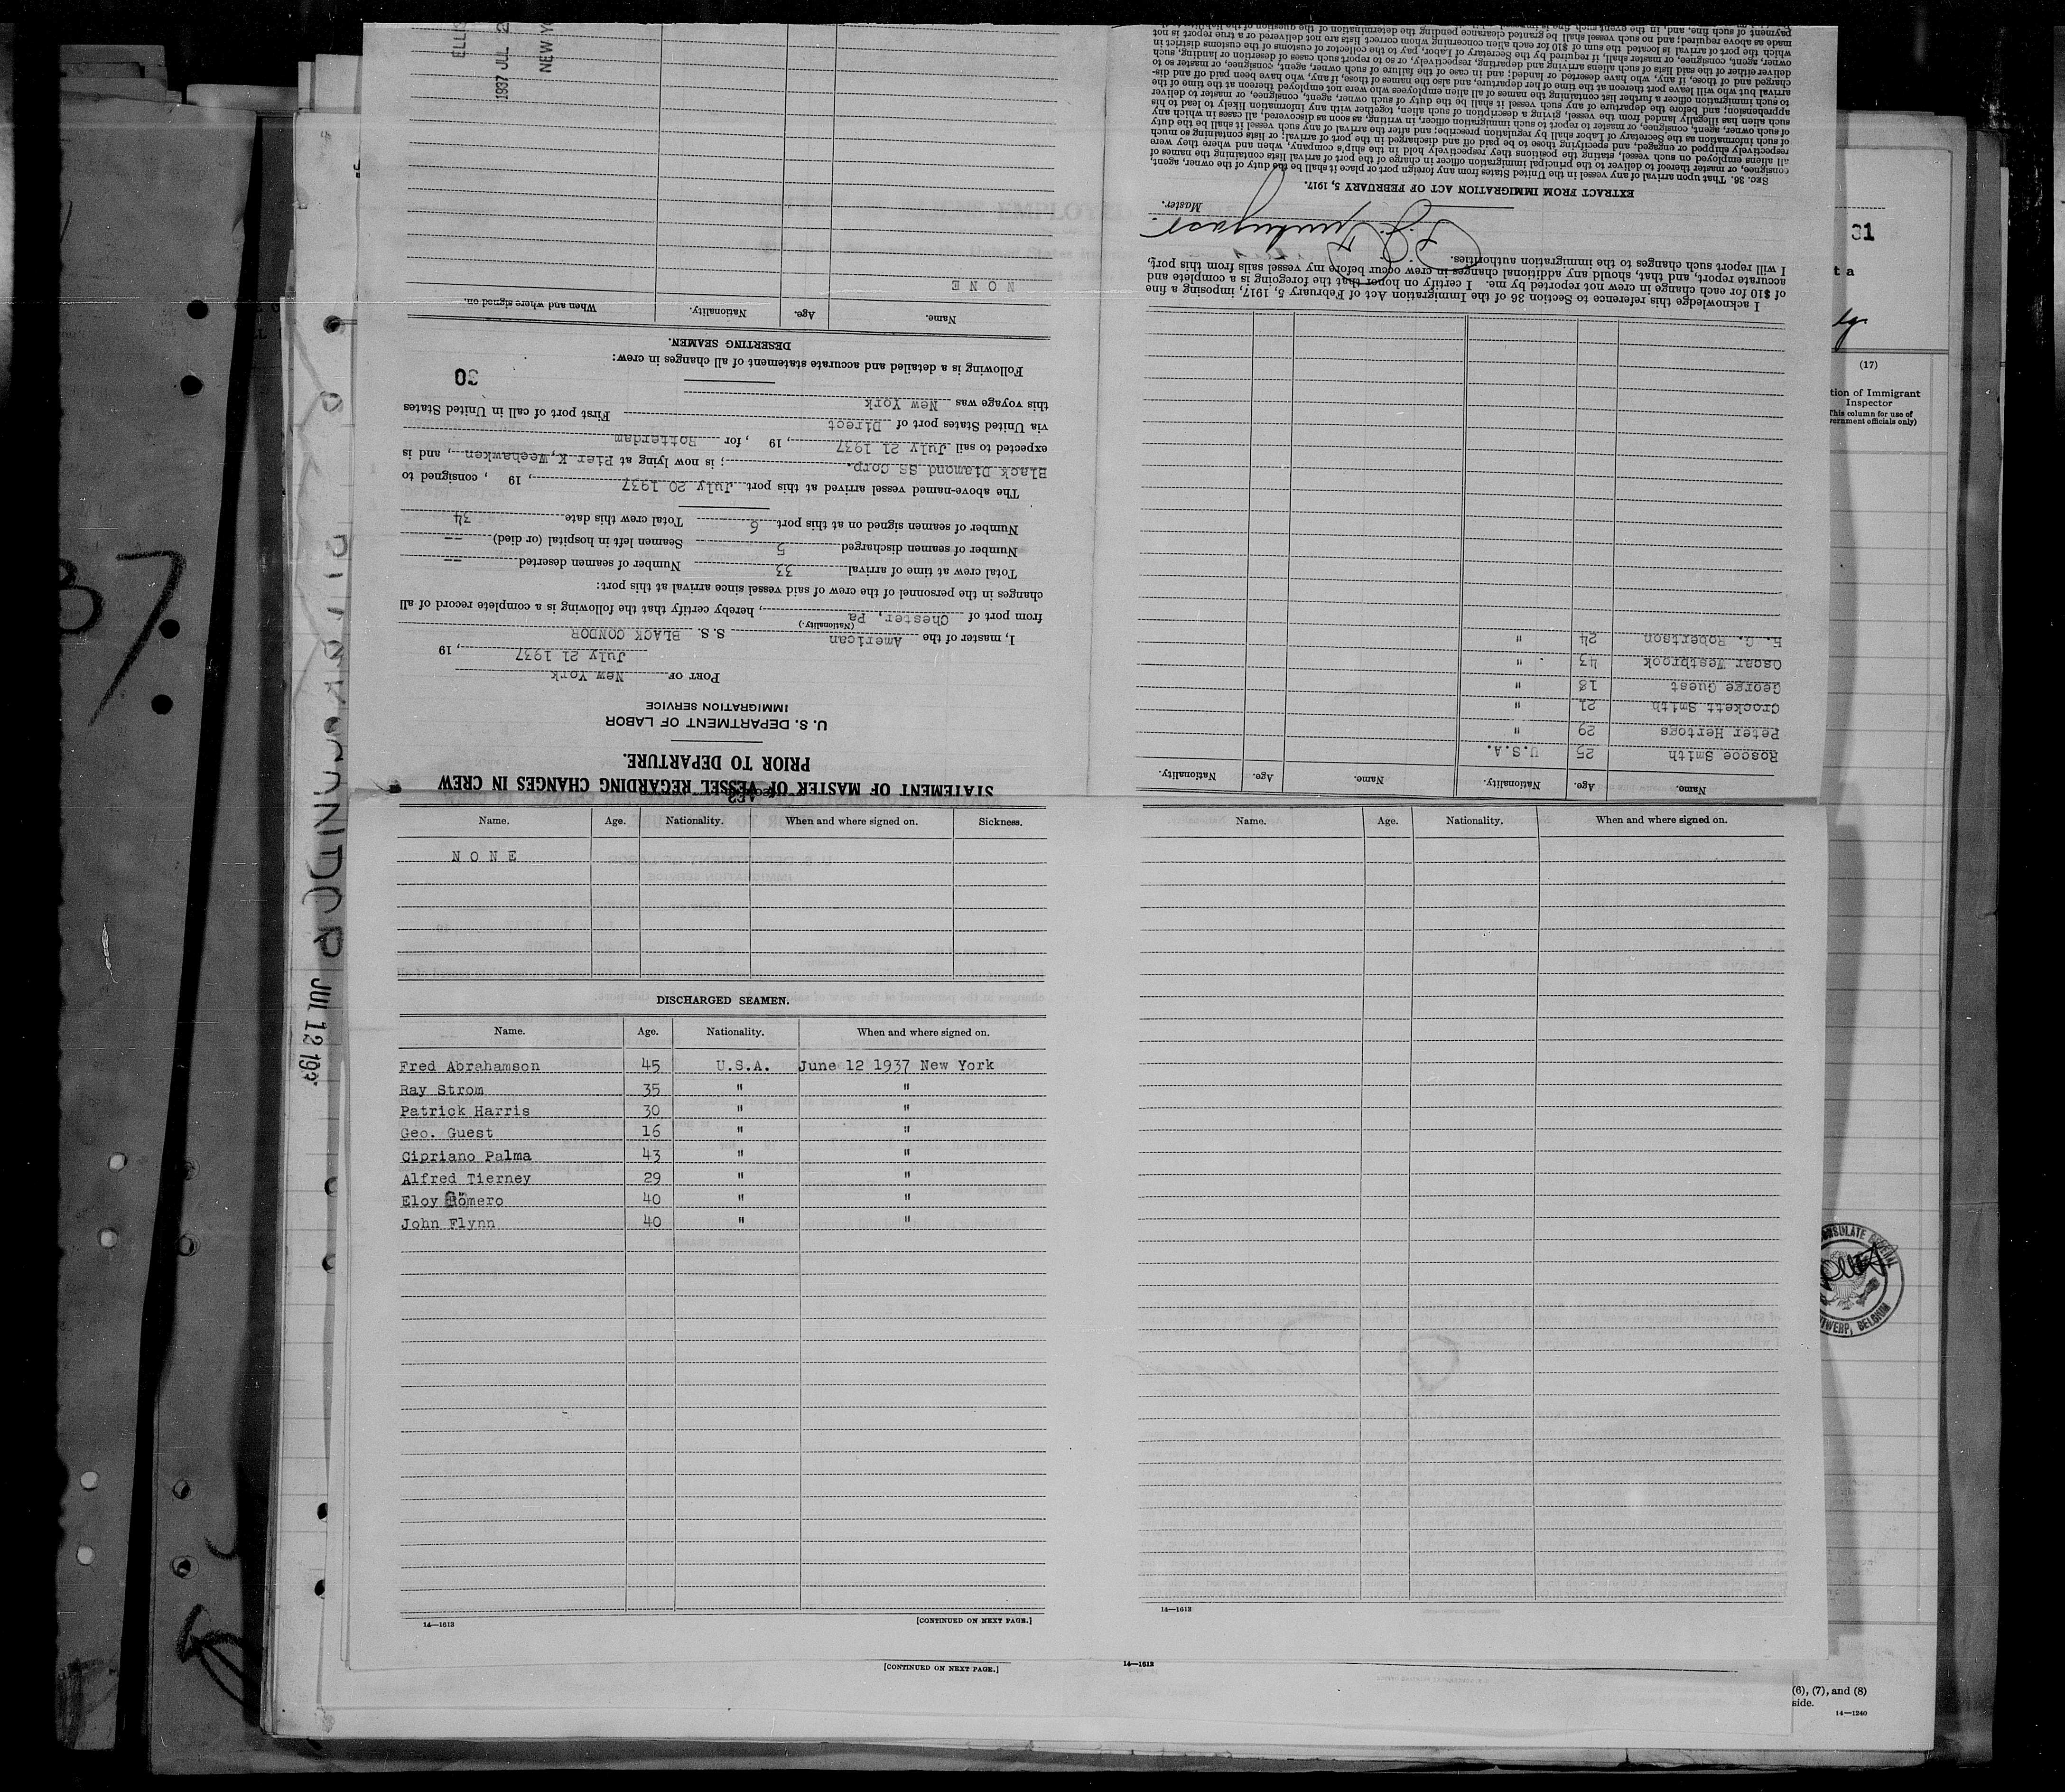 STATEMENT OF MASTER OF VESSEL REGARDING CHANGES IN CREW
PRIOR TO DEPARTURE.
U. S. DEPARTMENT OF LABOR
IMMIGRATION SERVICE
PORT OF New York
July 21 1937, 19
I, master of the American S. S. BLACK CONDOR
(Nationality.)
from port of Chester, Pa, hereby certify that the following is a complete record of all
changes in the personnel of the crew of said vessel since arrival at this port:
Total crew at time of arrival 33 Number of seamen deserted --
Number of seamen discharged 5 Seamen left in hospital (or died) --
Number of seamen signed on at this port 6 Total crew this date 34
The above-named vessel arrived at this port July 20 1937, 19 , consigned to
Black Diamond SS Corp. ; is now lying at Pier K, Weehawken, and is
expected to sail July 21 1937, 19 , for Rotterdam
via United States port of Direct First port of call in United States
this voyage was New York
30
Following is a detailed and accurate statement of all changes in crew:
DESERTING SEAMEN.
Name. Age. Nationality. When and where signed on.
N O N E
ELLIS
1937 JUL 2
NEW YO
Name. Age. Nationality. Name. Age. Nationality.
Roscoe Smith 25 U.S.A.
Peter Hertogs 29 "
Crockett Smith 21 "
George Guest 18 "
Oscar Westbrook 43 "
E. C. Robertson 24 "
I acknowledge this reference to Section 36 of the Immigration Act of February 5, 1917, imposing a fine
of $10 for each change in crew not reported by me. I certify on honor that the foregoing is a complete and
accurate report, and that, should any additional changes in crew occur before my vessel sails from this port,
I will report such changes to the immigration authorities.
Master.
EXTRACT FROM IMMIGRATION ACT OF FEBRUARY 5, 1917.
SEC. 36. That upon arrival of any vessel in the United States from any foreign port or place it shall be the duty of the owner, agent,
consignee, or master thereof to deliver to the principal immigration officer in charge of the port of arrival lists containing the names of
all aliens employed on such vessel, stating the positions they respectively hold in the ship's company, when and where they were
respectively shipped or engaged, and specifying those to be paid off and discharged in the port of arrival; or lists containing so much
of such information as the Secretary of Labor shall by regulation prescribe; and after the arrival of any such vessel it shall be the duty
of such owner, agent, consignee, or master to report to such immigration officer, in writing, as soon as discovered, all cases in which any
such alien has illegally landed from the vessel, giving a description of such alien, together with any information likely to lead to his
apprehension; and before the departure of any such vessel it shall be the duty of such owner, agent, consignee, or master to deliver
to such immigration officer a further list containing the names of all alien employees who were not employed thereon at the time of the
arrival but who will leave port thereon at the time of her departure, and also the names of those, if any, who have been paid off and dis-
charged and of those, if any, who have deserted or landed; and in case of the failure of such owner, agent, consignee, or master so to
deliver either of the said lists of such aliens arriving and departing, respectively, or so to report such cases of desertion or landing, such
owner, agent, consignee, or master shall, if required by the Secretary of Labor, pay to the collector of customs of the customs district in
which the port of arrival is located the sum of $10 for each alien concerning whom correct lists are not delivered or a true report is not
made as above required; and no such vessel shall be granted clearance pending the determination of the question of the
payment of such fine, and, in the event such fine is
Name. Age. Nationality. When and where signed on. Sickness.
N O N E
DISCHARGED SEAMEN.
Name. Age. Nationality. When and where signed on.
Fred Abrahamson 45 U.S.A. June 12 1937 New York
Ray Strom 35 " "
Patrick Harris 30 " "
Geo. Guest 16 " "
Cipriano Palma 43 " "
Alfred Tierney 29 " "
Eloy Romero 40 " "
John Flynn 40 " "
14—1613 [CONTINUED ON NEXT PAGE.]
[CONTINUED ON NEXT PAGE.]
Name. Age. Nationality. When and where signed on.
14—1613
14—1613
31
(17)
tion of Immigrant
Inspector
This column for use of
ernment officials only)
(6), (7), and (8)
side.
14—1240
JUL 12 193
37